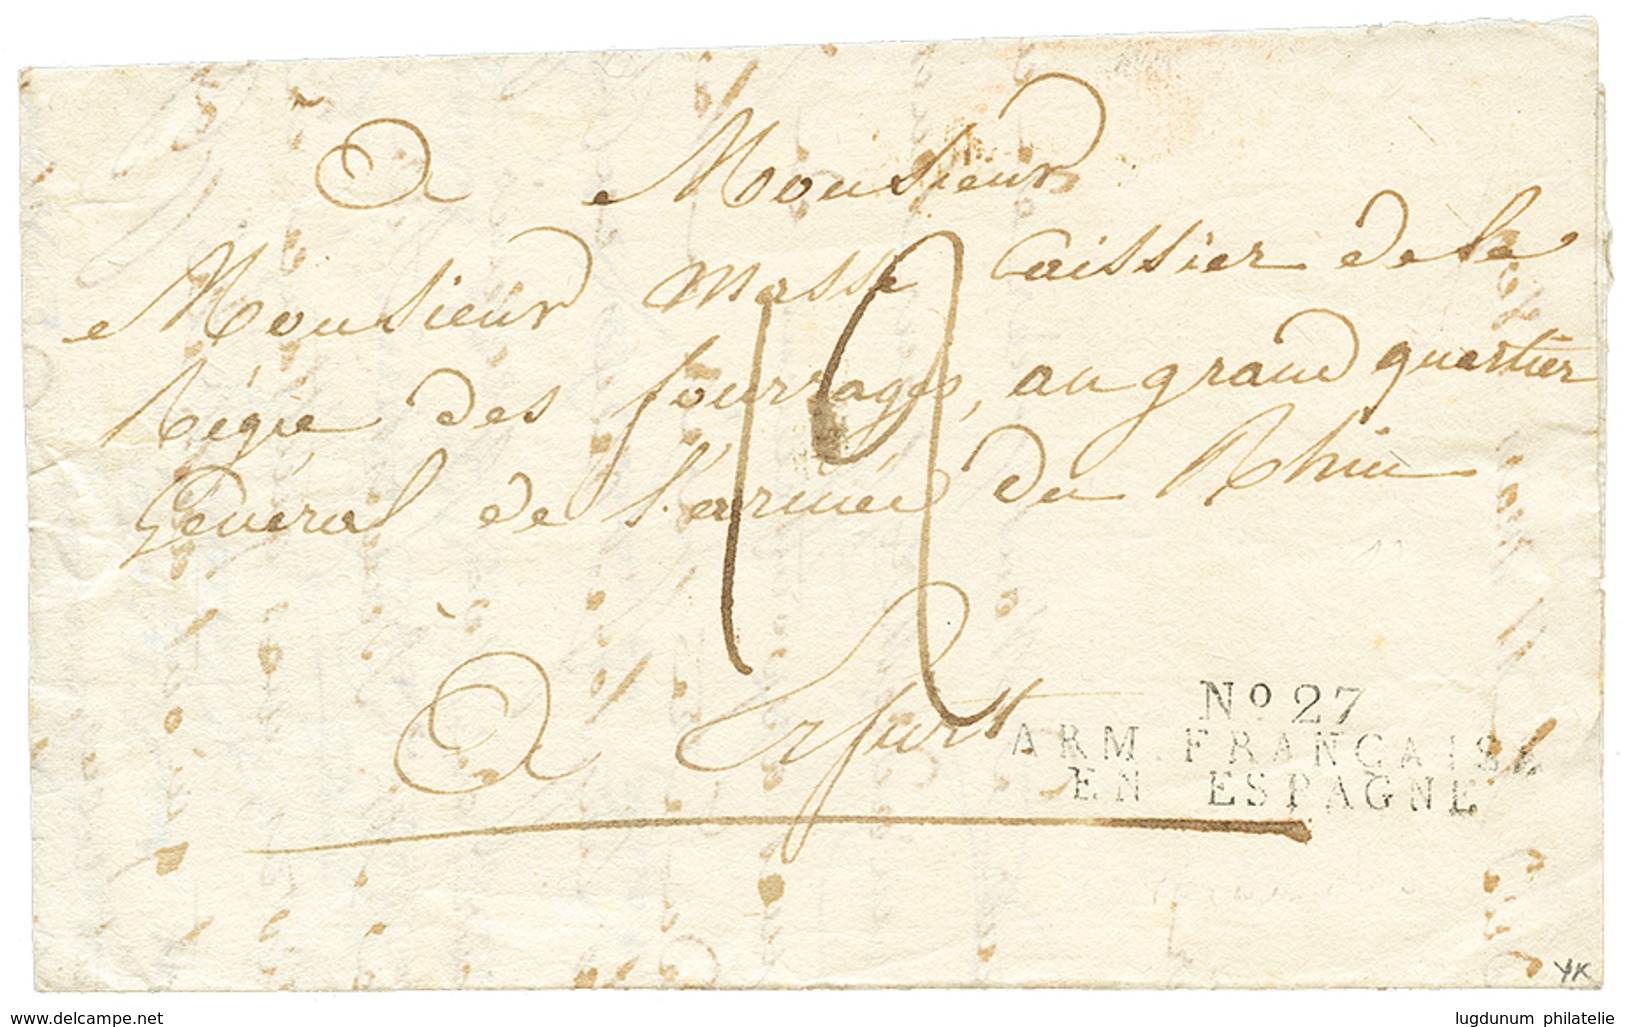 A Monsieur
Monsieur Masse Caissier de la
Régie des fourrages, au grand quartier
Général de l'armée du Rhin
A Erfurt
12
No 27
ARM. FRANCAISE
EN ESPAGNE
YK
delcampe.net
lugdunum philatelie